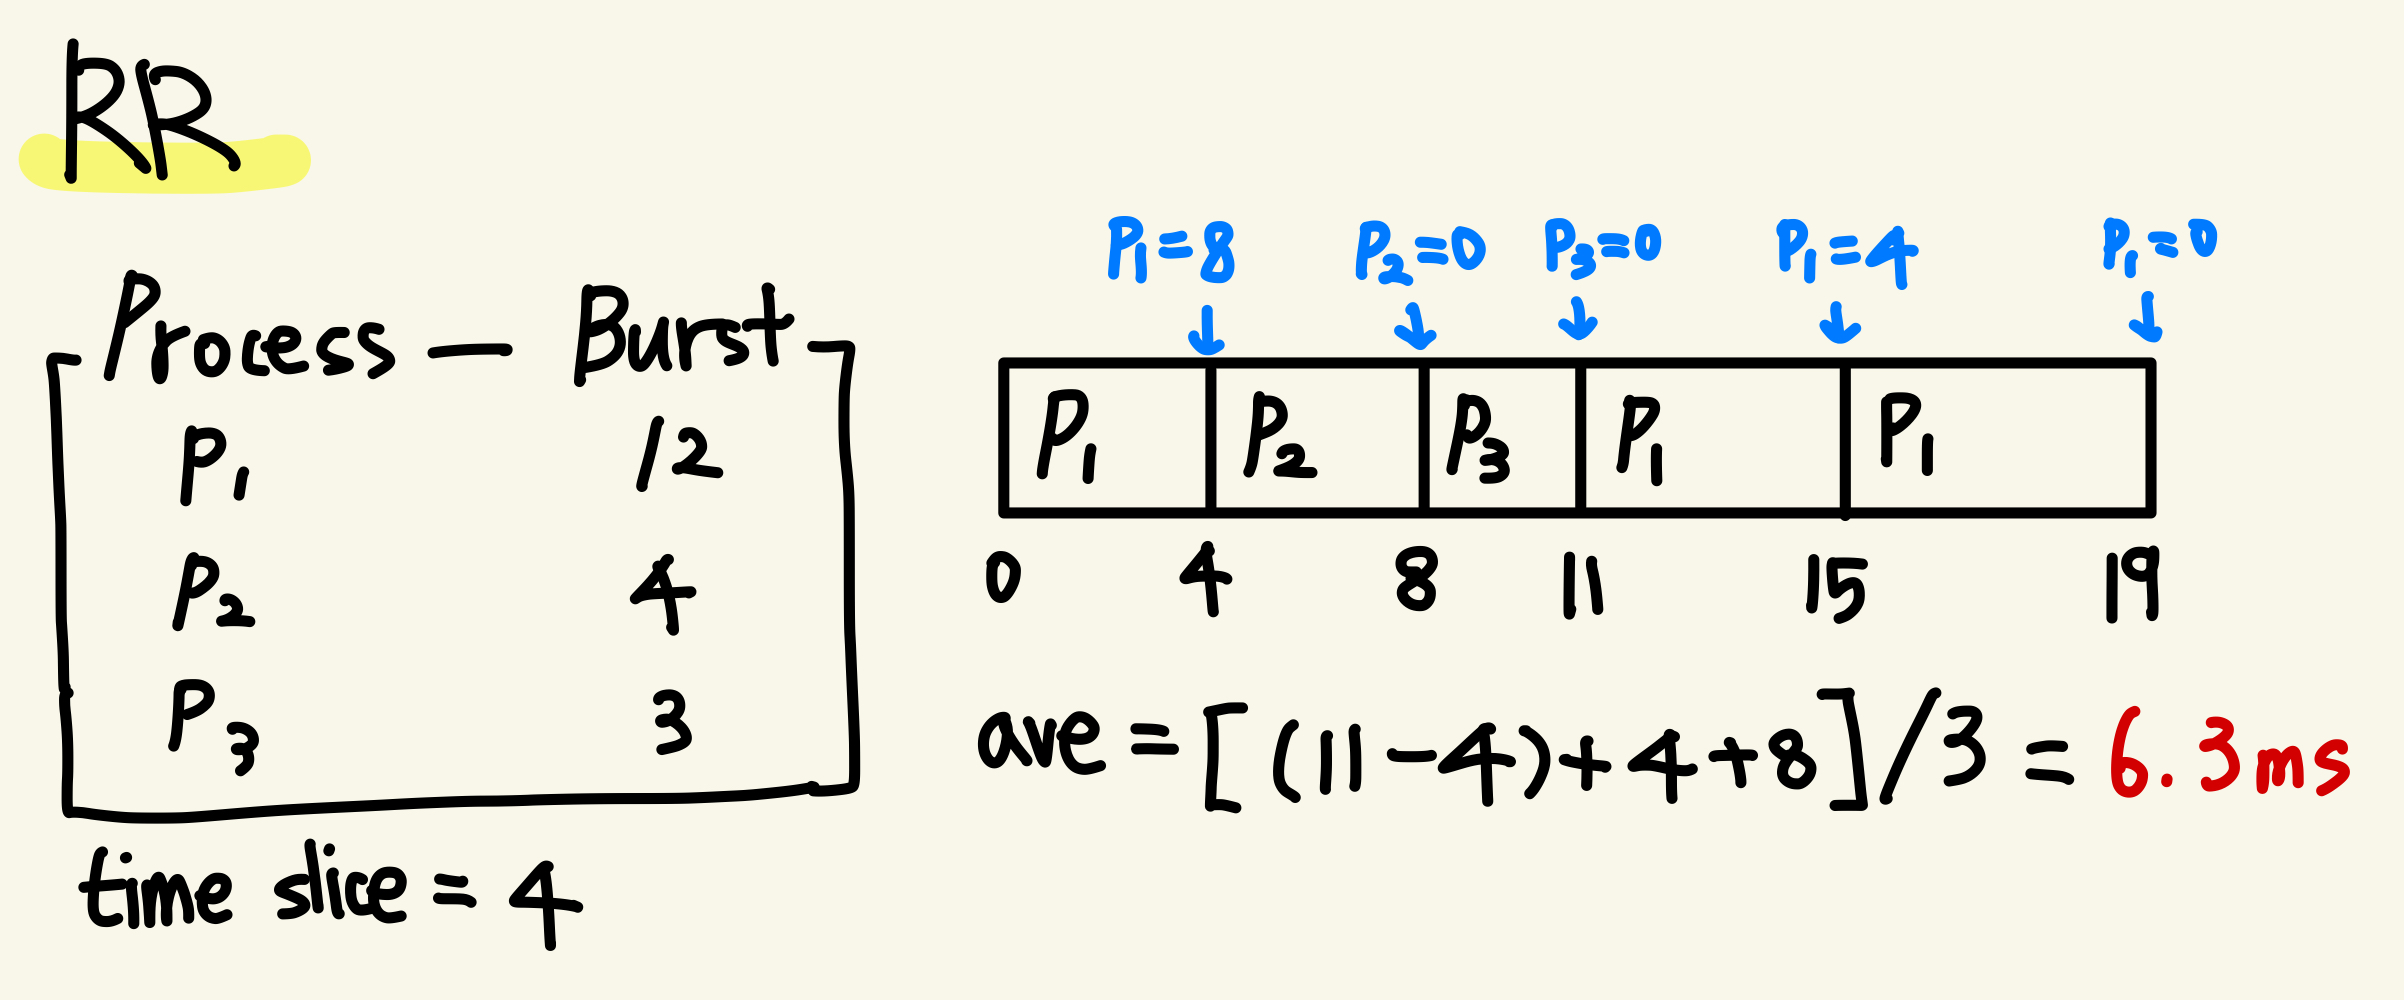 RR
Process — Burst
P1 12
P2 4
P3 3
time slice = 4
P1=8 P2=0 P3=0 P1=4 P1=0
P1 P2 P3 P1 P1
0 4 8 11 15 19
ave = [(11-4)+4+8]/3 = 6.3ms